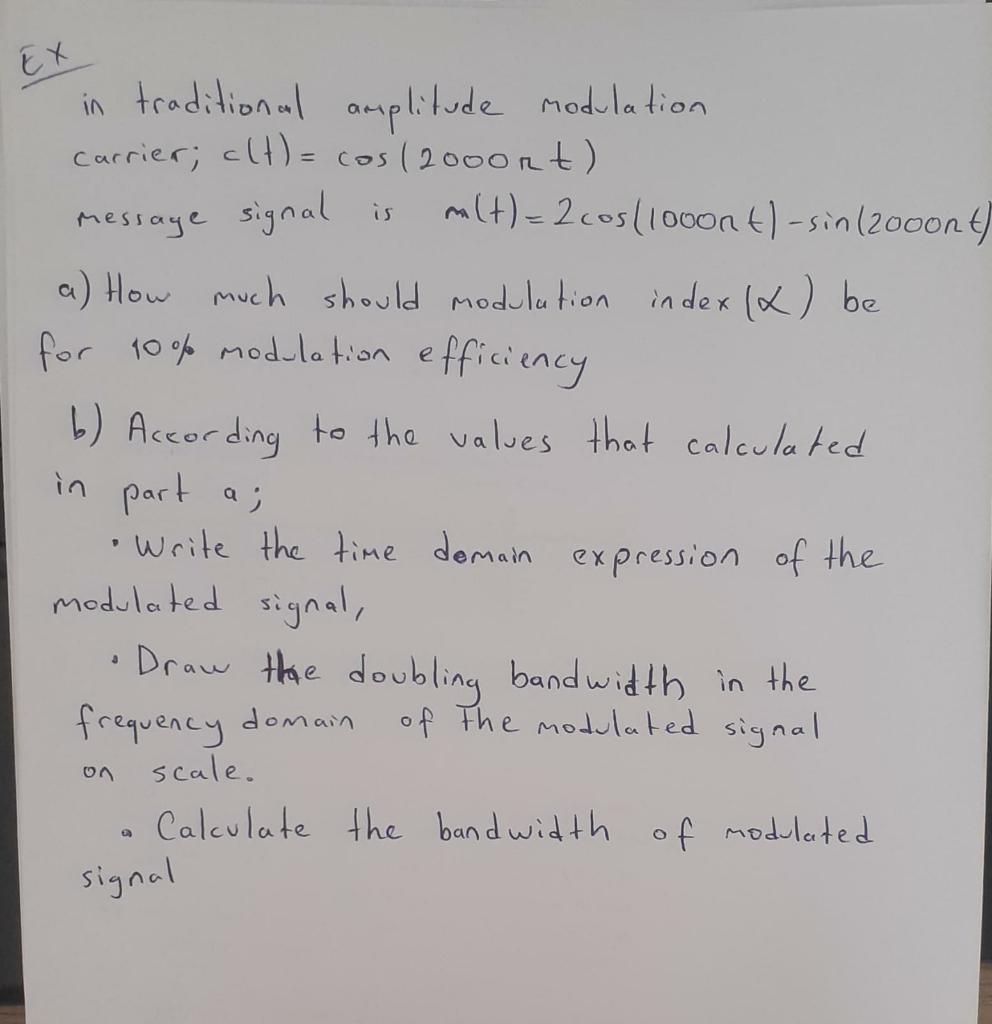 EX
in traditional amplitude modulation
carrier; c(t) = cos(2000πt)
message signal is m(t) = 2cos(1000πt) - sin(2000πt)
a) How much should modulation index (α) be
for 10% modulation efficiency
b) According to the values that calculated
in part a;
• Write the time domain expression of the
modulated signal,
• Draw the doubling bandwidth in the
frequency domain of the modulated signal
on scale.
• Calculate the bandwidth of modulated
signal